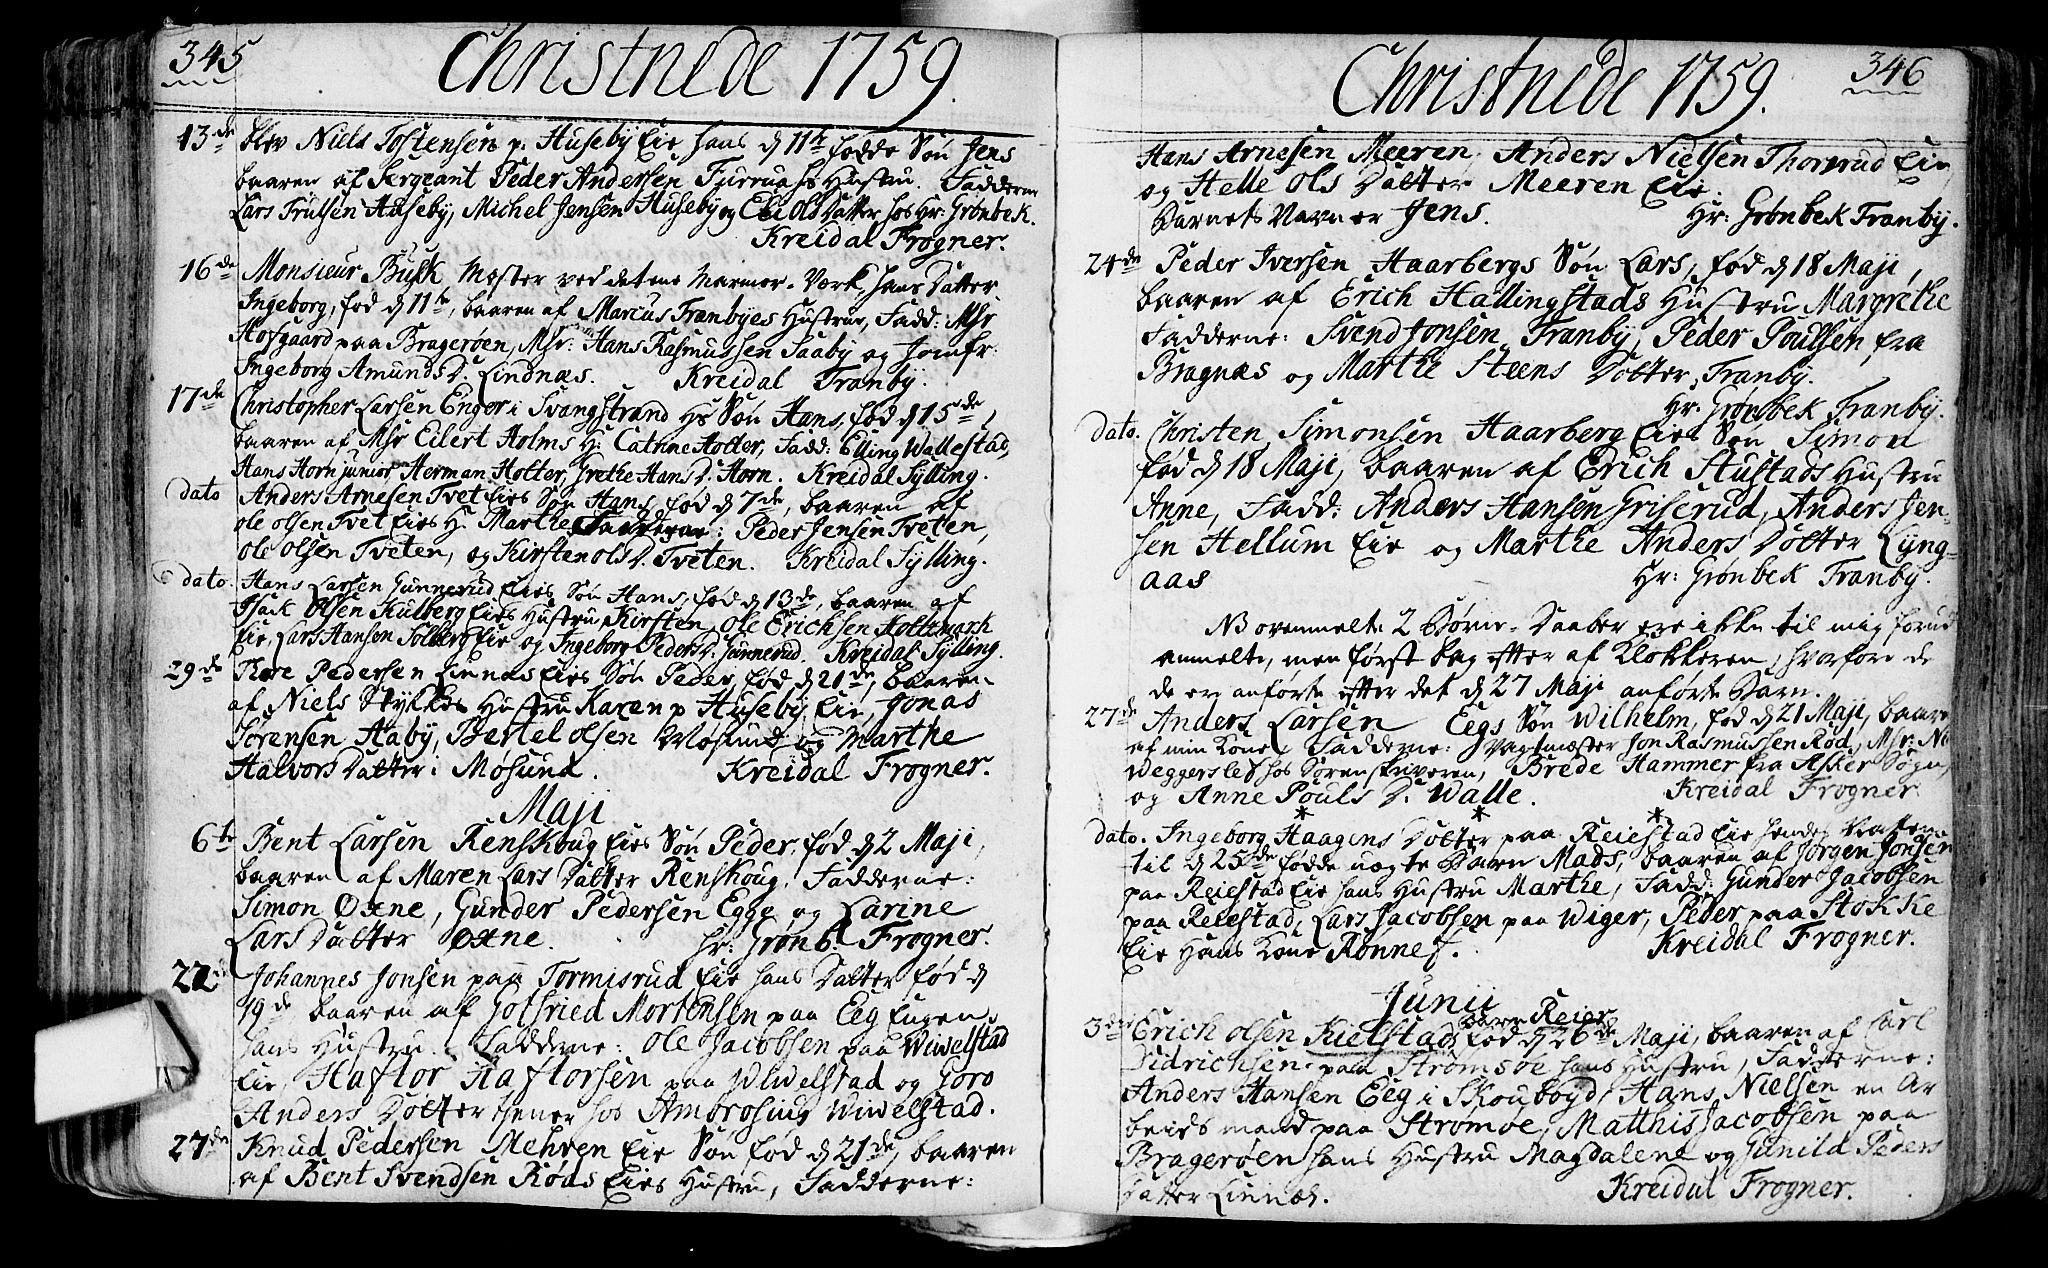 345
Christnede 1759.
13de blev Niels Tostensen p. Huseby Eie hans d 11te fødde Søn Jens
baaren af Sergeant Peder Andersen Furruahs Hustru. Fadderne
Lars Frutsen Huseby, Michel Jensen Huseby og Eli Ols Datter hos Hr: Grønbek.
Kreidal Frogner.
16de Monsieur Busk, Mæster ved det Marmor-Værk, hans Datter
Ingeborg, fød d 11te, baaren af Marcus Franbyes Hustrue, Fadd: Msr
Hofgaard paa Bragerøen, Msr: Hans Rasmussen Saaby og Jomfr:
Ingeborg Amunds D. Lindnæs. Kreidal Franby.
17de Christopher Larsen Enger i Svangstrand Hs Søn Hans, fød d 15de,
baaren af Msr Eilert Holms H: Cathrine Holter, Fadd: Elling Wallestad,
Hans Horn junior, Herman Holter, Grethe Hans D. Horn. Kreidal Sylling.
dato Anders Arnesen Tvet Eies Søn Hans, fød d 7de, baaren af
Ole Olsen Tvet Eies H. Marthe Fadderne: Peder Jensen Tveten,
Ole Olsen Tveten, og Kirsten Ols D. Tveten. Kreidal Sylling.
dato. Hans Larsen Gunnerud Eies Søn Hans, fød d 13de, baaren af
Isack Olsen Kulberg Eies Hustru Kirsten, Ole Erichsen Holtzmark
Eie, Lars Hansen Solberg Eie og Ingeborg Peders D. Gunnerud. Kreidal Sylling.
29de Thore Pedersen Linnæs Eies Søn Peder, fød d 21de, baaren
af Niels Stykkes Hustru Karen p Huseby Eie, Jonas
Sørensen Haby, Bertel Olsen Møsund og Marthe
Halvors Datter i Møsund. Kreidal Frogner.
Maji
6te Bent Larsen Renskoug Eies Søn Peder, fød d 2 Maji,
baaren af Maren Lars Datter Renskoug. Fadderne:
Simon Oxne, Gunder Pedersen Egge og Larine
Lars Datter Oxne. Hr: Grønb. Frogner.
22de Johannes Jonsen paa Tormisrud Eie hans Datter fød d
19de baaren af Gotfried Mortensen paa Eeg Eugen
hans Hustru. Fadderne: Ole Jacobsen paa Wiwelstad
Eie, Haftor Haftorsen paa Wiwelstad og Goro
Anders Datter tjener hos Ambrosius Wiwelstad.
27de Knud Pedersen Mehren Eie Søn fød d 21de, baaren
af Bent Svendsen Røds Eies Hustru, Fadderne:
346
Christnede 1759.
Hans Arnesen Meeren, Anders Nielsen Thorsrud Eie
og Helle Ols Datter Meeren Eie.
Barnets Navn er Jens. Hr: Grønbek Franby.
24de Peder Iversen Haarbergs Søn Lars, fød d 18 Maji,
baaren af Erich Hallingstads Hustru Margrethe
Fadderne: Svend Jonsen Franby, Peder Poulsen fra
Bragnæs og Marthe Steens Datter Franby.
Hr: Grønbek Franby.
dato. Christen Simonsen Haarberg Eies Søn Simon
fød d 18 Maji, baaren af Erich Stustads Hustru
Anne, Fadd: Anders Hansen Griserud, Anders Jen-
sen Hellum Eie og Marthe Anders Datter Lyng-
aas Hr: Grønbek Franby.
NB ovenmelte 2 Børne-Daaber ere ikke til mig forud
anmelte, men først bag efter af Klokkeren, hvorfore de
de ere anførte efter det d 27 Maji anførte Barn.
27de Anders Larsen Eegs Søn Wilhelm, fød d 21 Maji, baaren
af min Kone, Fadderne: Vagtmæster Jon Rasmussen Rød, Msr. Ni
Weggersløf hos Sorenskriveren, Brede Hammer fra Asker Sogn,
og Anne Pouls D. Walle. Kreidal Frogner
dato. Ingeborg Haagens Datter paa Reiestad Eie hendes Natten
til d 25de fødde uægte Barn Mads, baaren af Jørgen Jonsen
paa Reiestad Eie hans Hustru Marthe, Fadd: Gunder Jacobsen
paa Reiestad, Lars Jacobsen paa Wiger, Peder paa Stokke
Eie Hans Kone Ronnef. Kreidal Frogner.
Junii
3de Erich Olsen Kielstads Barn Reier fød d 26de Maji, baaren af Carl
Didrichsen paa Strømsøe hans Hustru, Fadderne:
Anders Hansen Eeg i Skouboyd, Hans Nielsen en Ar
beidsmand paa Strømøe, Matthis Jacobsen paa
Bragerøen hans Hustru Magdalene og Gunild Peders
Datter Linnæs. Kreidal Frogner.